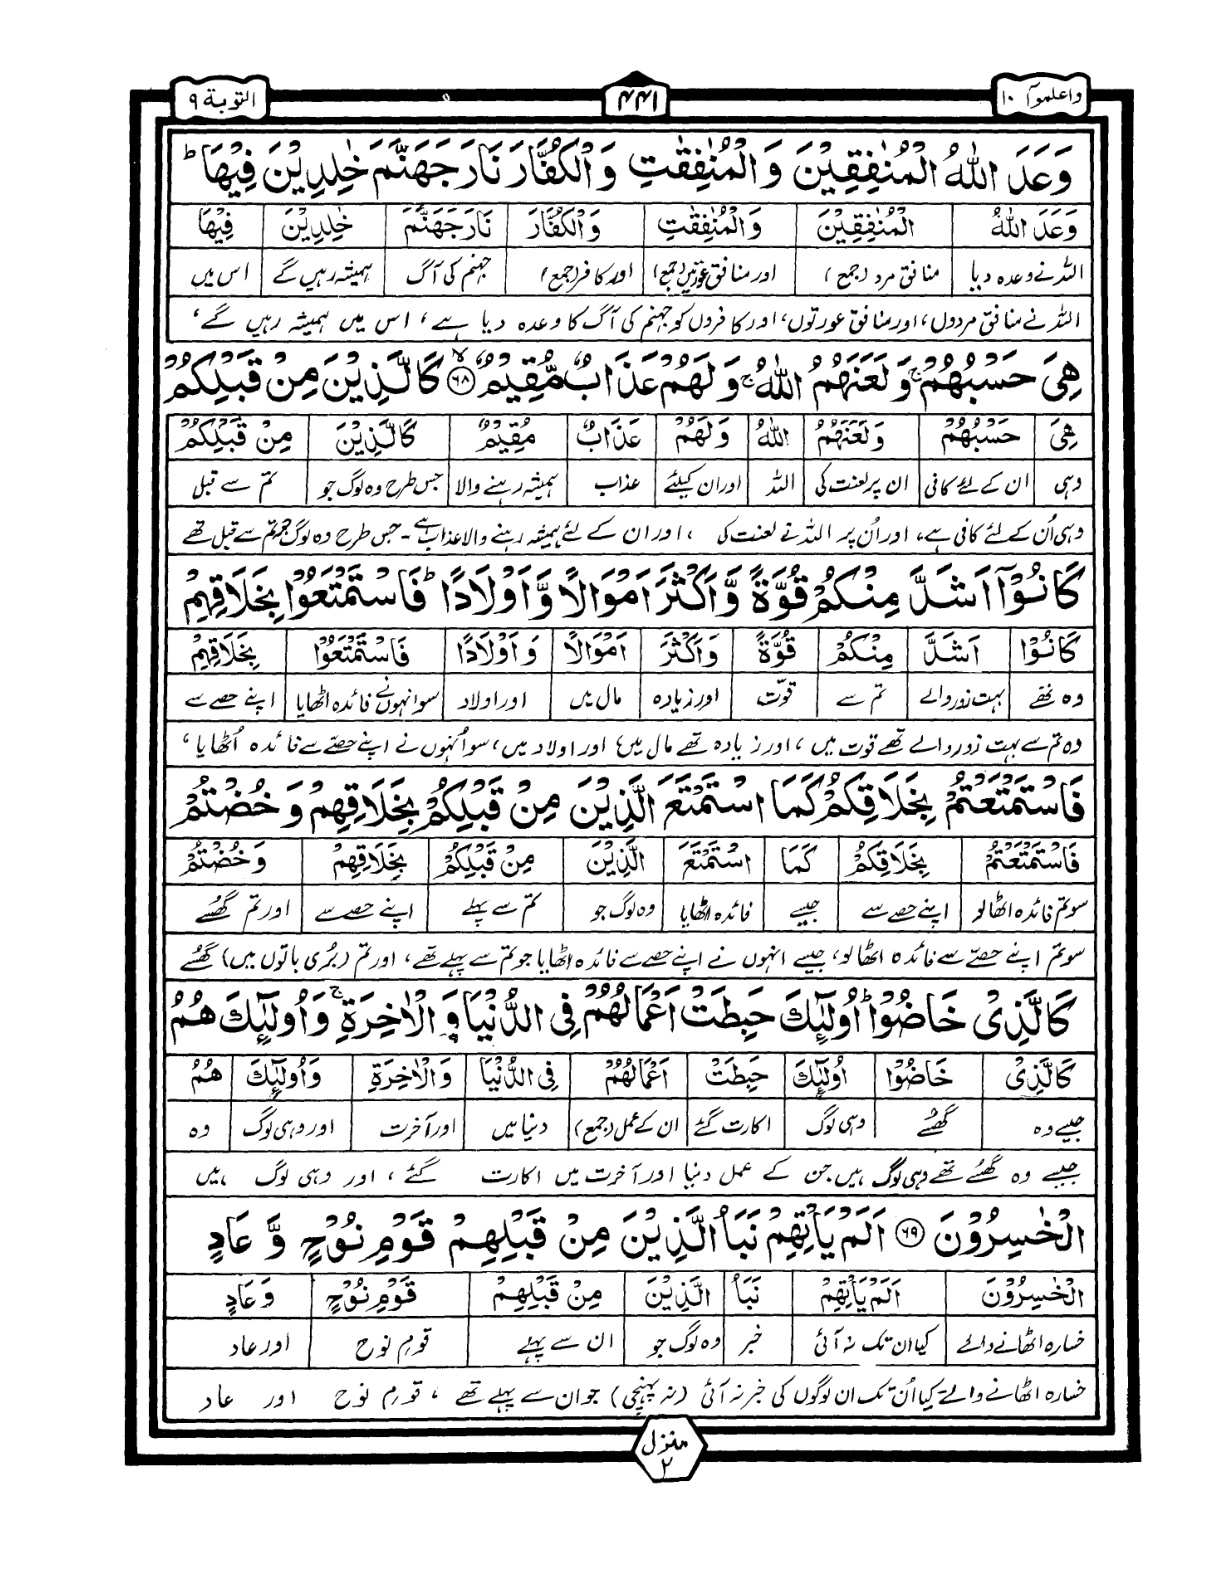 واعلموآ ١٠
٤٤١
التوبة ٩
وَعَدَ اللّٰهُ الْمُنٰفِقِيْنَ وَ الْمُنٰفِقٰتِ وَ الْكُفَّارَ نَارَ جَهَنَّمَ خٰلِدِيْنَ فِيْهَا ؕ
وَعَدَ اللّٰهُ الْمُنٰفِقِيْنَ وَالْمُنٰفِقٰتِ وَالْكُفَّارَ نَارَ جَهَنَّمَ خٰلِدِيْنَ فِيْهَا
اللہ نے وعدہ دیا منافق مرد (جمع) اور منافق عورتیں (جمع) اور کافر (جمع) جہنم کی آگ ہمیشہ رہیں گے اس میں
اللہ نے منافق مردوں، اور منافق عورتوں، اور کافروں کو جہنم کی آگ کا وعدہ دیا ہے، اس میں ہمیشہ رہیں گے،
هِيَ حَسْبُهُمْ ۚ وَلَعَنَهُمُ اللّٰهُ ۚ وَ لَهُمْ عَذَابٌ مُّقِيْمٌ ۙ ﴿٦٨﴾ كَالَّذِيْنَ مِنْ قَبْلِكُمْ
هِيَ حَسْبُهُمْ وَلَعَنَهُمُ اللّٰهُ وَلَهُمْ عَذَابٌ مُقِيْمٌ كَالَّذِيْنَ مِنْ قَبْلِكُمْ
وہی ان کے لئے کافی ان پر لعنت کی اللہ اور ان کیلئے عذاب ہمیشہ رہنے والا جس طرح وہ لوگ جو تم سے قبل
وہی اُن کے لئے کافی ہے، اور اُن پر اللہ نے لعنت کی ، اور ان کے لئے ہمیشہ رہنے والا عذاب ہے - جس طرح وہ لوگ جو تم سے قبل تھے
كَانُوْٓا اَشَدَّ مِنْكُمْ قُوَّةً وَّ اَكْثَرَ اَمْوَالًا وَّ اَوْلَادًا ؕ فَاسْتَمْتَعُوْا بِخَلَاقِهِمْ
كَانُوْٓا اَشَدَّ مِنْكُمْ قُوَّةً وَاَكْثَرَ اَمْوَالًا وَ اَوْلَادًا فَاسْتَمْتَعُوْا بِخَلَاقِهِمْ
وہ تھے بہت زور والے تم سے قوّت اور زیادہ مال میں اور اولاد سو انہوں نے فائدہ اٹھایا اپنے حصے سے
وہ تم سے بہت زور والے تھے قوت میں ، اور زیادہ تھے مال میں اور اولاد میں، سو اُنہوں نے اپنے حصّے سے فائدہ اُٹھایا ،
فَاسْتَمْتَعْتُمْ بِخَلَاقِكُمْ كَمَا اسْتَمْتَعَ الَّذِيْنَ مِنْ قَبْلِكُمْ بِخَلَاقِهِمْ وَ خُضْتُمْ
فَاسْتَمْتَعْتُمْ بِخَلَاقِكُمْ كَمَا اسْتَمْتَعَ الَّذِيْنَ مِنْ قَبْلِكُمْ بِخَلَاقِهِمْ وَخُضْتُمْ
سو تم فائدہ اٹھا لو اپنے حصے سے جیسے فائدہ اٹھایا وہ لوگ جو تم سے پہلے اپنے حصے سے اور تم گھُسے
سو تم اپنے حصّے سے فائدہ اٹھا لو، جیسے انہوں نے اپنے حصے سے فائدہ اٹھایا جو تم سے پہلے تھے، اور تم (بُری باتوں میں) گھُسے
كَالَّذِيْ خَاضُوْا ؕ اُولٰٓئِكَ حَبِطَتْ اَعْمَالُهُمْ فِي الدُّنْيَا وَ الْاٰخِرَةِ ۚ وَ اُولٰٓئِكَ هُمُ
كَالَّذِيْ خَاضُوْا اُولٰٓئِكَ حَبِطَتْ اَعْمَالُهُمْ فِي الدُّنْيَا وَالْاٰخِرَةِ وَاُولٰٓئِكَ هُمُ
جیسے وہ گھُسے وہی لوگ اکارت گئے ان کے عمل (جمع) دنیا میں اور آخرت اور وہی لوگ وہ
جیسے وہ گھُسے تھے وہی لوگ ہیں جن کے عمل دنیا اور آخرت میں اکارت گئے ، اور وہی لوگ ہیں
الْخٰسِرُوْنَ ﴿٦٩﴾ اَلَمْ يَاْتِهِمْ نَبَاُ الَّذِيْنَ مِنْ قَبْلِهِمْ قَوْمِ نُوْحٍ وَّ عَادٍ
الْخٰسِرُوْنَ اَلَمْ يَاْتِهِمْ نَبَاُ الَّذِيْنَ مِنْ قَبْلِهِمْ قَوْمِ نُوْحٍ وَعَادٍ
خسارہ اٹھانے والے کیا ان تک نہ آئی خبر وہ لوگ جو ان سے پہلے قومِ نوح اور عاد
خسارہ اٹھانے والے کیا اُن تک ان لوگوں کی خبر نہ آئی (نہ پہنچی) جو ان سے پہلے تھے ، قومِ نوح اور عاد
منزل
٢